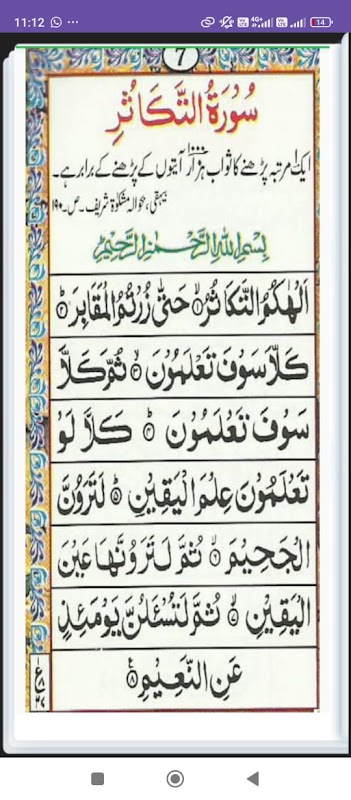 11:12
14
7
سُوْرَةُ التَّكَاثُرِ
ایک مرتبہ پڑھنے کا ثواب ۱۰۰۰ ہزار آیتوں کے پڑھنے کے برابر ہے۔
بیہقی، بحوالہ مشکوٰۃ شریف۔ ص۔ ۱۹۰
بِسْمِ اللهِ الرَّحْمٰنِ الرَّحِيْمِ
اَلْهٰكُمُ التَّكَاثُرُ ۙ۱ حَتّٰى زُرْتُمُ الْمَقَابِرَ ؕ۲
كَلَّا سَوْفَ تَعْلَمُوْنَ ۙ۳ ثُمَّ كَلَّا
سَوْفَ تَعْلَمُوْنَ ؕ۴ كَلَّا لَوْ
تَعْلَمُوْنَ عِلْمَ الْيَقِيْنِ ؕ۵ لَتَرَوُنَّ
الْجَحِيْمَ ۙ۶ ثُمَّ لَتَرَوُنَّهَا عَيْنَ
الْيَقِيْنِ ۙ۷ ثُمَّ لَتُسْـَٔلُنَّ يَوْمَئِذٍ
عَنِ النَّعِيْمِ ۠۸